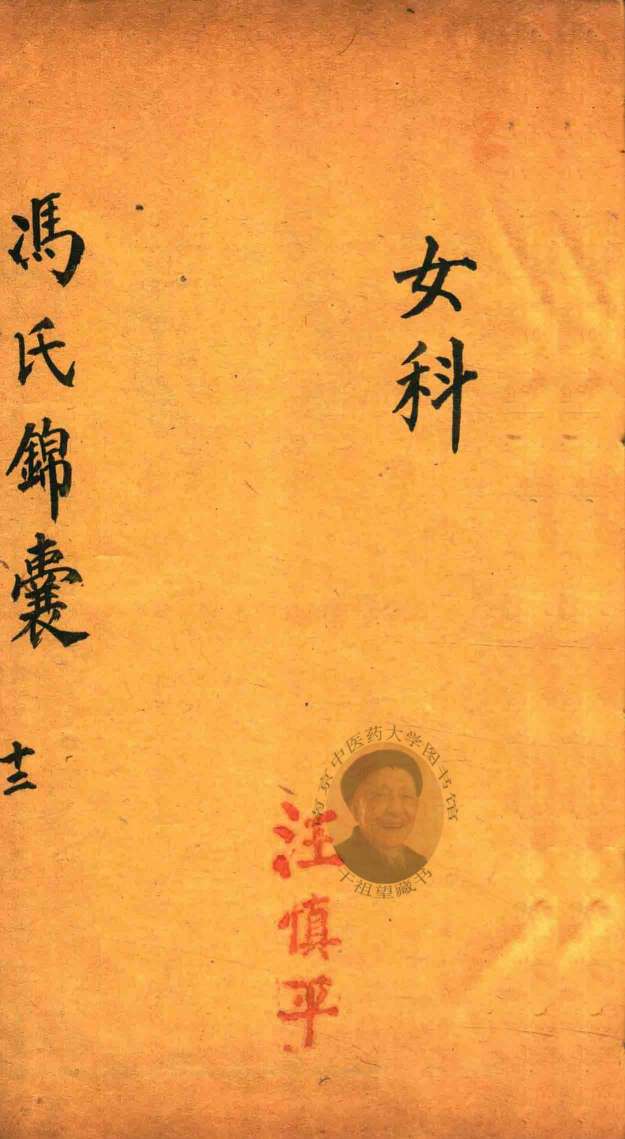 女科
馮氏錦囊
十二
南京中医药大学图书馆
干祖望藏书
汪慎平